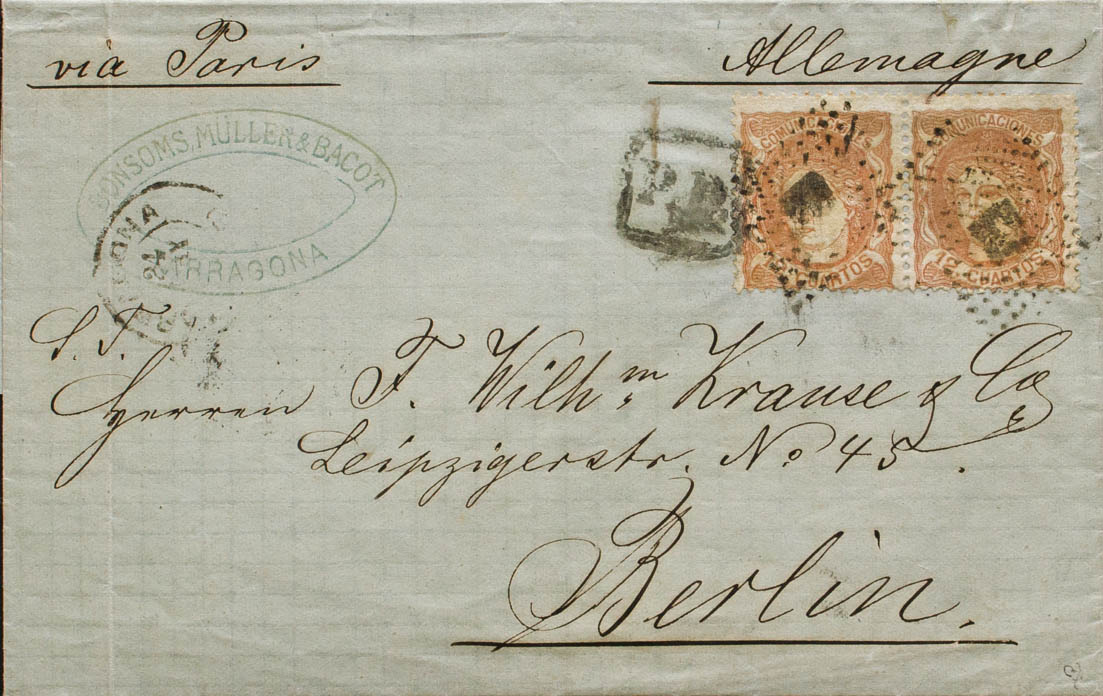 via Paris
Allemagne
BONSOMS, MÜLLER & BACOT
TARRAGONA
COMUNICACIONES
12 CUARTOS
COMUNICACIONES
12 CUARTOS
TARRAGONA
24
S. T.
Herren F. Wilhm Krause & Co
Leipzigerstr. No 45.
Berlin.